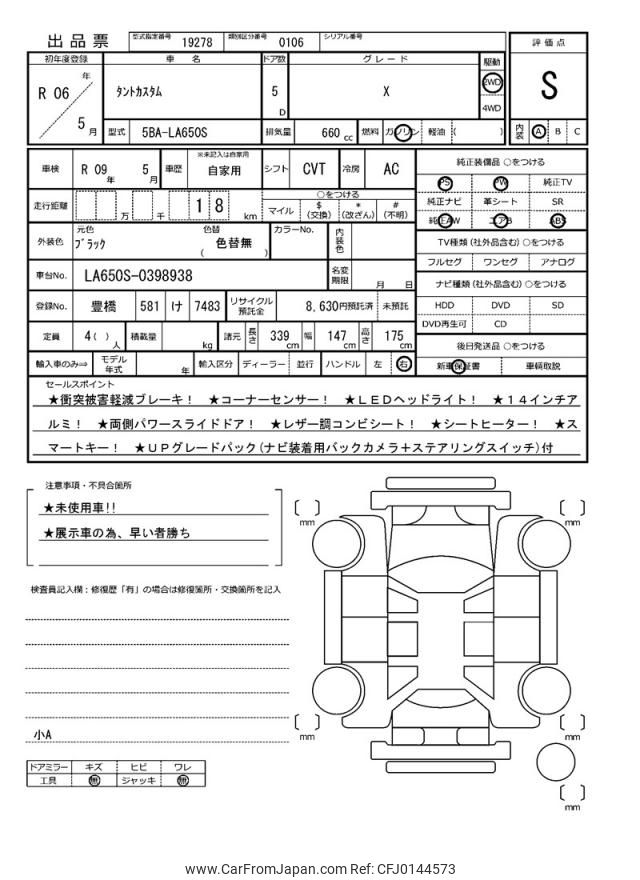 出品票 型式指定番号 19278 類別区分番号 0106 シリアル番号
評価点
S
内装 A B C
初年度登録 車名 ドア数 グレード 駆動
R 06 年 5 月 タントカスタム 5 D X 2WD 4WD
型式 5BA-LA650S 排気量 660 cc 燃料 ガソリン 軽油 ( )
車検 R 09 年 5 月 車歴 ※未記入は自家用 自家用 シフト CVT 冷房 AC
走行距離 万 千 1 8 km ○をつける マイル $ (交換) * (改ざん) # (不明)
外装色 元色 ブラック 色替 ( 色替無 ) カラーNo. 内装色
車台No. LA650S-0398938 名変期限 月 日
登録No. 豊橋 581 け 7483 リサイクル預託金 8,630円預託済 未預託
定員 4( ) 人 積載量 kg 諸元 長さ 339 cm 幅 147 cm 高さ 175 cm
輸入車のみ⇒ モデル年式 年 輸入区分 ディーラー 並行 ハンドル 左 右
純正装備品 ○をつける
PS PW 純正TV
純正ナビ 革シート SR
純正AW エアB ABS
TV種類 (社外品含む) ○をつける
フルセグ ワンセグ アナログ
ナビ種類 (社外品含む) ○をつける
HDD DVD SD
DVD再生可 CD
後日発送品 ○をつける
新車保証書 車輌取説
セールスポイント
★衝突被害軽減ブレーキ！ ★コーナーセンサー！ ★ＬＥＤヘッドライト！ ★１４インチア
ルミ！ ★両側パワースライドドア！ ★レザー調コンビシート！ ★シートヒーター！ ★ス
マートキー！ ★ＵＰグレードパック(ナビ装着用バックカメラ＋ステアリングスイッチ)付
注意事項・不具合箇所
★未使用車!!
★展示車の為、早い者勝ち
検査員記入欄：修復歴「有」の場合は修復箇所・交換箇所を記入
小A
ドアミラー キズ ヒビ ワレ
工具 無 ジャッキ 無
[ ] mm
[ ] mm
[ ] mm
[ ] mm
[ ] mm
www.CarFromJapan.com Ref: CFJ0144573